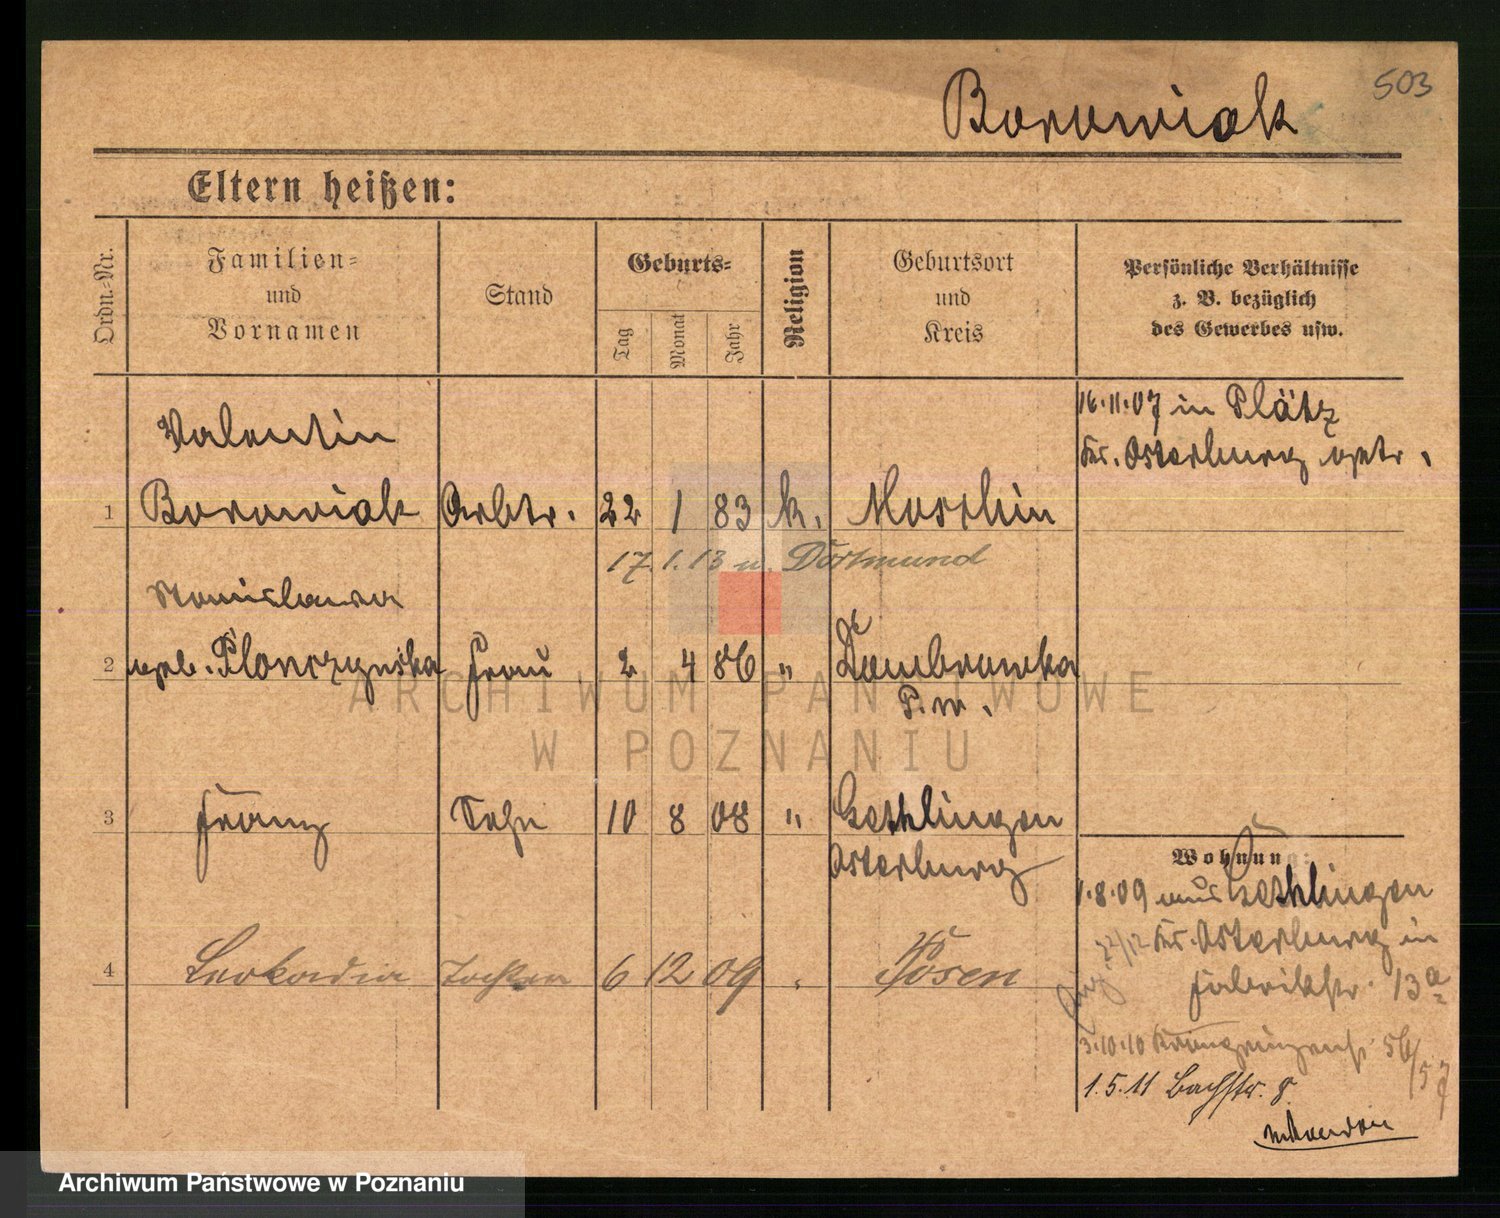 503
Borowiak
Eltern heißen:
Ordn.-Nr.
Familien-
und
Vornamen
Stand
Geburts-
Tag
Monat
Jahr
Religion
Geburtsort
und
Kreis
Persönliche Verhältnisse
z. B. bezüglich
des Gewerbes usw.
16.11.07 in Plätz
Krs. Osterburg getr.
Valentin
1 Borowiak Arbtr. 22 1 83 k. Moschin
17.1.13 n. Dortmund
Stanislawa
2 geb. Plonczynska Frau 2 4 86 " Dombrowka
P.w.
3 Franz Sohn 10 8 08 " Geshlingen
Osterburg
Wohnung:
1.8.09 aus Geshlingen
Krs. Osterburg in
Fabrikstr. 13a
4 Leokadia Tochter 6 12 09 " Posen
3.10.10 Kronprinzenst. 56/57
1.5.11 Bachstr. 8
ARCHIWUM PAŃSTWOWE
W POZNANIU
Archiwum Państwowe w Poznaniu